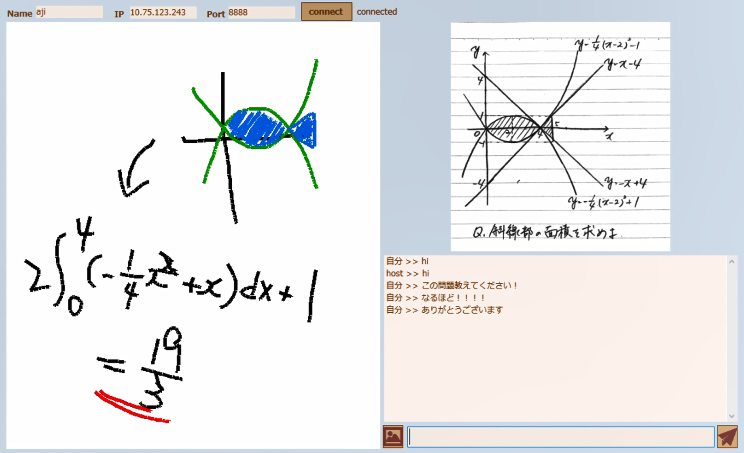 Name aji IP 10.75.123.243 Port 8888 connect connected
2∫₀⁴(-1/4x²+x)dx+1
=19/3
y=1/4(x-2)²-1
y
y=x-4
4
1
0
2
4
5
x
-1
-4
y=-x+4
y=-1/4(x-2)²+1
Q. 斜線部の面積を求めよ.
自分 >> hi
host >> hi
自分 >> この問題教えてください！
自分 >> なるほど！！！！
自分 >> ありがとうございます